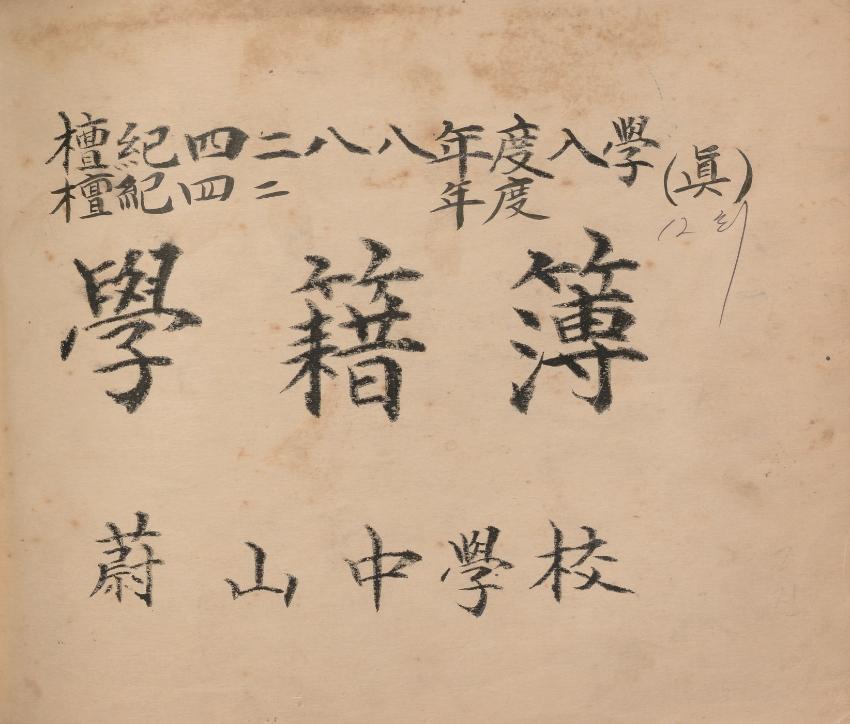 檀紀四二八八年度入學
檀紀四二 年度
(眞)
12회
學籍簿
蔚山中學校